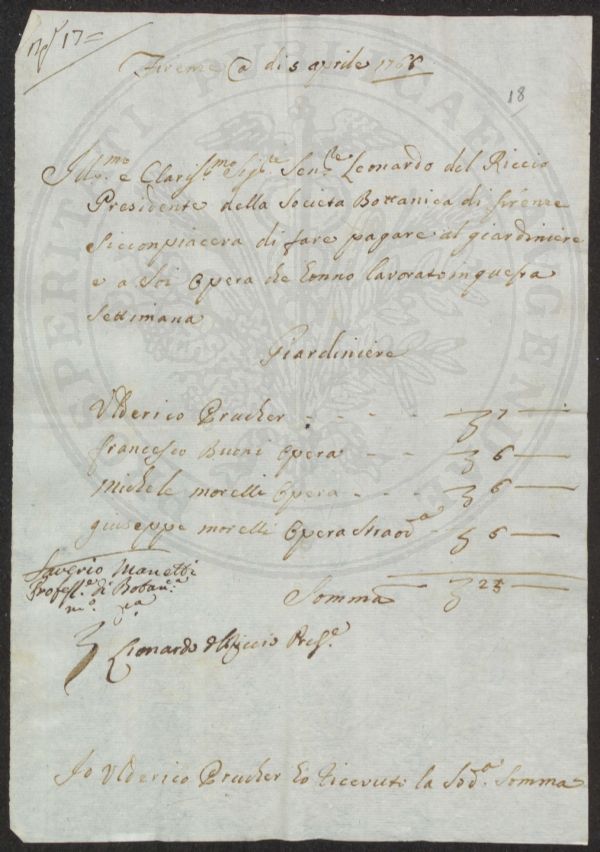 N.º 17=
Firenze a di 5 aprile 1766
18
Ill.mo e Claris.mo Sig.re Sen.re Leonardo del Riccio
Presidente della Societa Bottanica di firenze
Siccompiacera di fare pagare al giardiniere
e a Soi Opera che Eonno lavorato in questa
Settimana
Giardiniere
Ulderico Prucker - - - - 7 —
francesco Buoni Opera - - 6 —
Michele morelli Opera - - 6 —
giuseppe morelli Opera Straod.a - 6 —
Somma — 25
Saverio Manetti
Profess.e di Botan.ca
m.o p.a
Lionardo d Riccio Pres.e
Io Ulderico Prucker Eo Ricevuti la Sod.a Somma
AE PUBLICAE
O SPERITATI